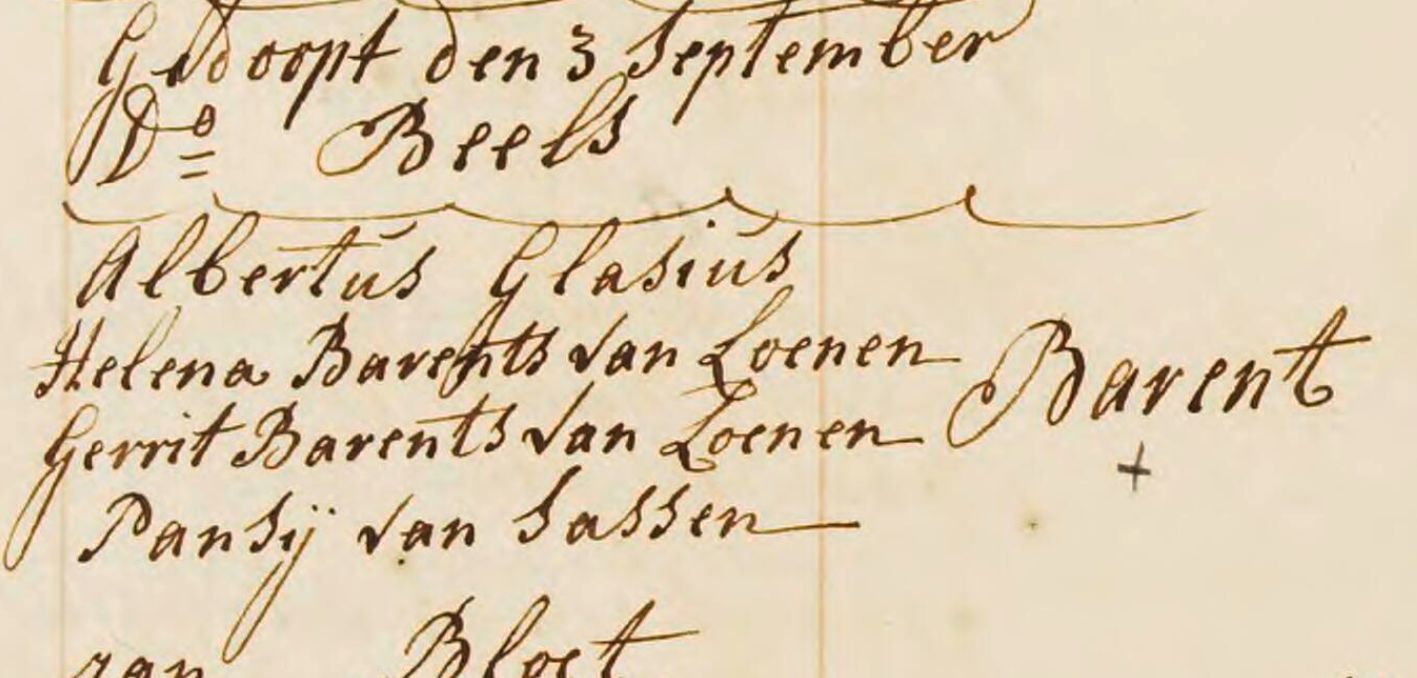 Gedoopt den 3 September
Do Beels
Albertus Glasius
Helena Barents van Loenen
Barent
Gerrit Barents van Loenen
+
Pansÿ van Sassen
Bloet